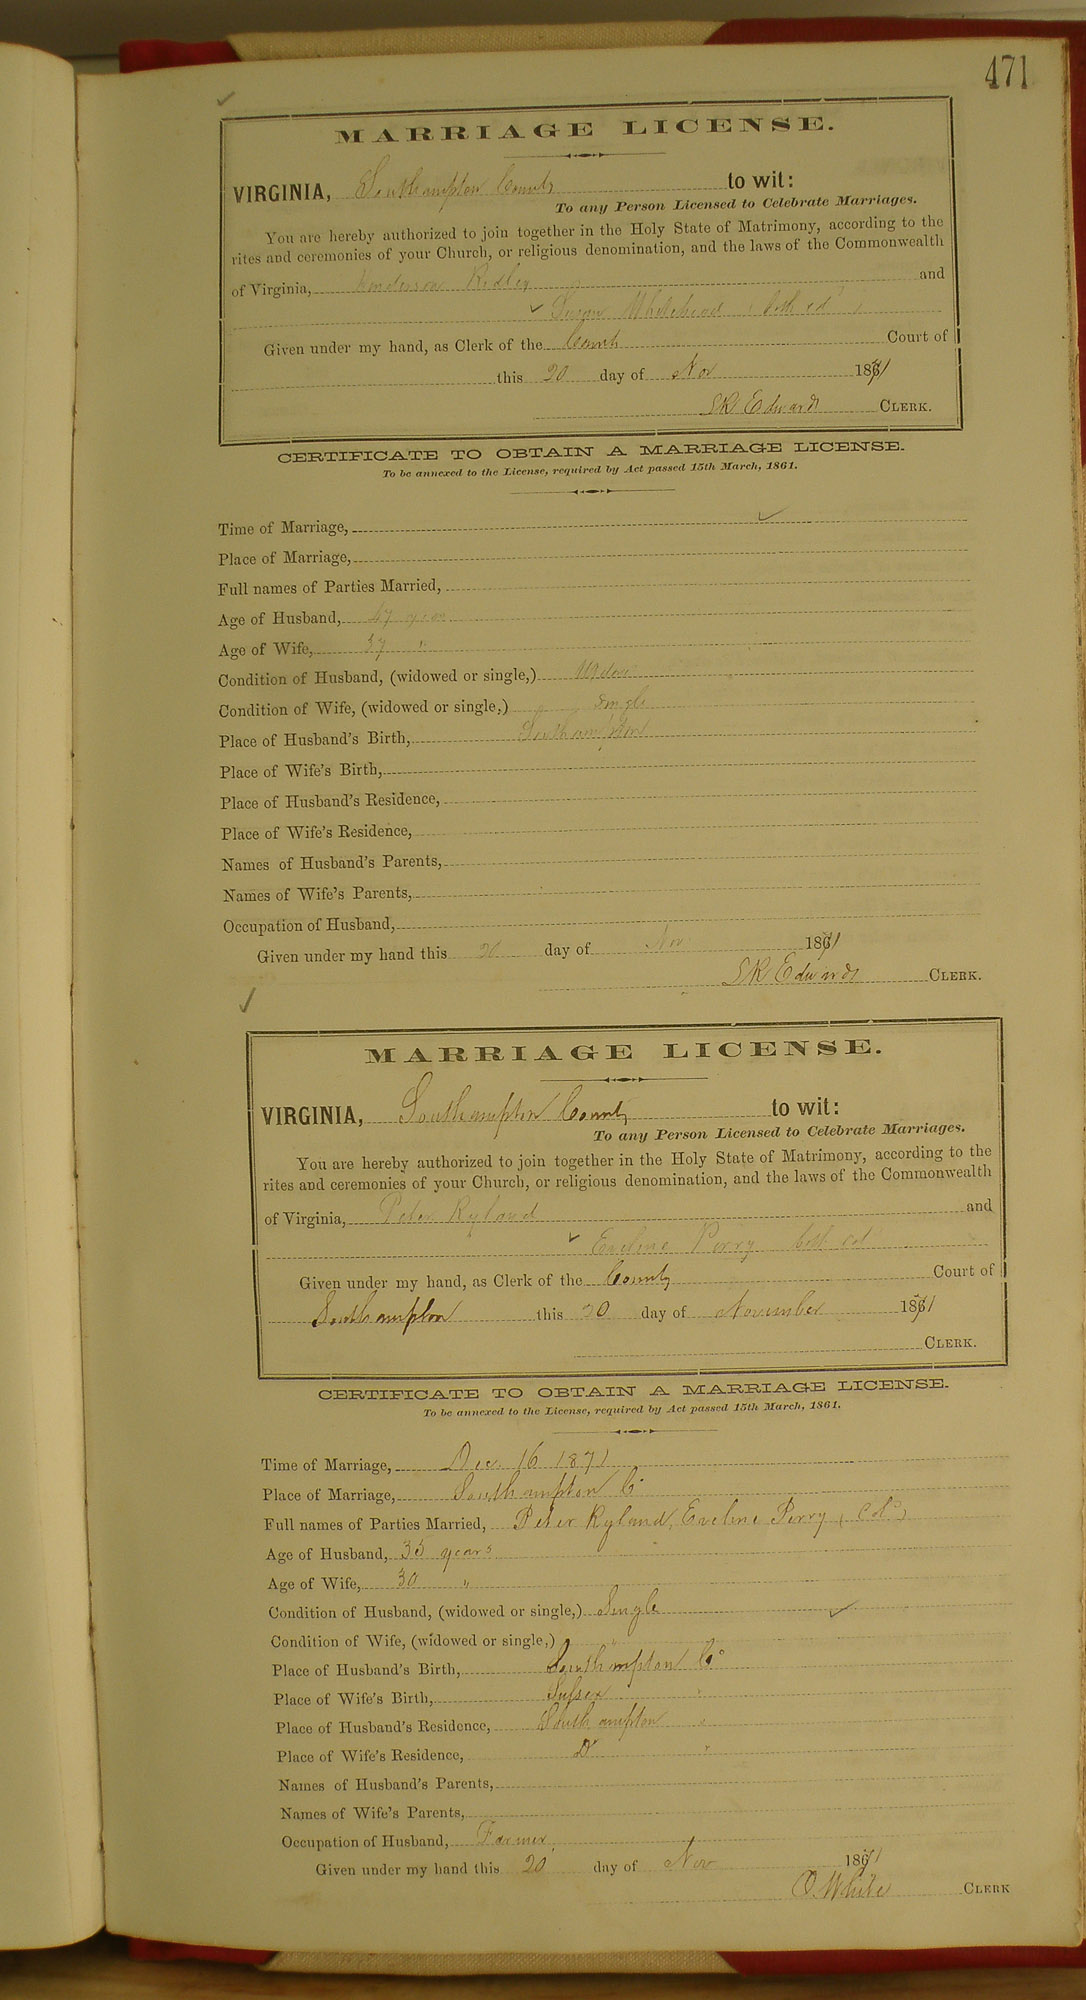 471
MARRIAGE LICENSE.
VIRGINIA, Southampton County to wit:
To any Person Licensed to Celebrate Marriages.
You are hereby authorized to join together in the Holy State of Matrimony, according to the
rites and ceremonies of your Church, or religious denomination, and the laws of the Commonwealth
of Virginia, Henderson Ridley and
Susan Whitehead (both cd)
Given under my hand, as Clerk of the County Court of
this 20 day of Nov 1871
CLERK.
S R Edwards
CERTIFICATE TO OBTAIN A MARRIAGE LICENSE.
To be annexed to the License, required by Act passed 15th March, 1861.
Time of Marriage,
Place of Marriage,
Full names of Parties Married,
Age of Husband, 47 years
Age of Wife, 37 "
Condition of Husband, (widowed or single,)
Condition of Wife, (widowed or single,) Single
Place of Husband's Birth, Southampton
Place of Wife's Birth,
Place of Husband's Residence,
Place of Wife's Residence,
Names of Husband's Parents,
Names of Wife's Parents,
Occupation of Husband,
Given under my hand this 20 day of Nov 1871
S R Edwards CLERK.
MARRIAGE LICENSE.
VIRGINIA, Southampton County to wit:
To any Person Licensed to Celebrate Marriages.
You are hereby authorized to join together in the Holy State of Matrimony, according to the
rites and ceremonies of your Church, or religious denomination, and the laws of the Commonwealth
of Virginia, Peter Ryland and
Eveline Perry both cd
Given under my hand, as Clerk of the County Court of
Southampton this 20 day of November 1871
CLERK.
CERTIFICATE TO OBTAIN A MARRIAGE LICENSE.
To be annexed to the License, required by Act passed 15th March, 1861.
Time of Marriage, Dec 16 1871
Place of Marriage, Southampton Co
Full names of Parties Married, Peter Ryland, Eveline Perry (Cold)
Age of Husband, 35 years
Age of Wife, 30 "
Condition of Husband, (widowed or single,) Single
Condition of Wife, (widowed or single,) "
Place of Husband's Birth, Southampton Co
Place of Wife's Birth, Sussex "
Place of Husband's Residence, Southampton "
Place of Wife's Residence, Do "
Names of Husband's Parents,
Names of Wife's Parents,
Occupation of Husband, Farmer
Given under my hand this 20 day of Nov 1871
O. White CLERK